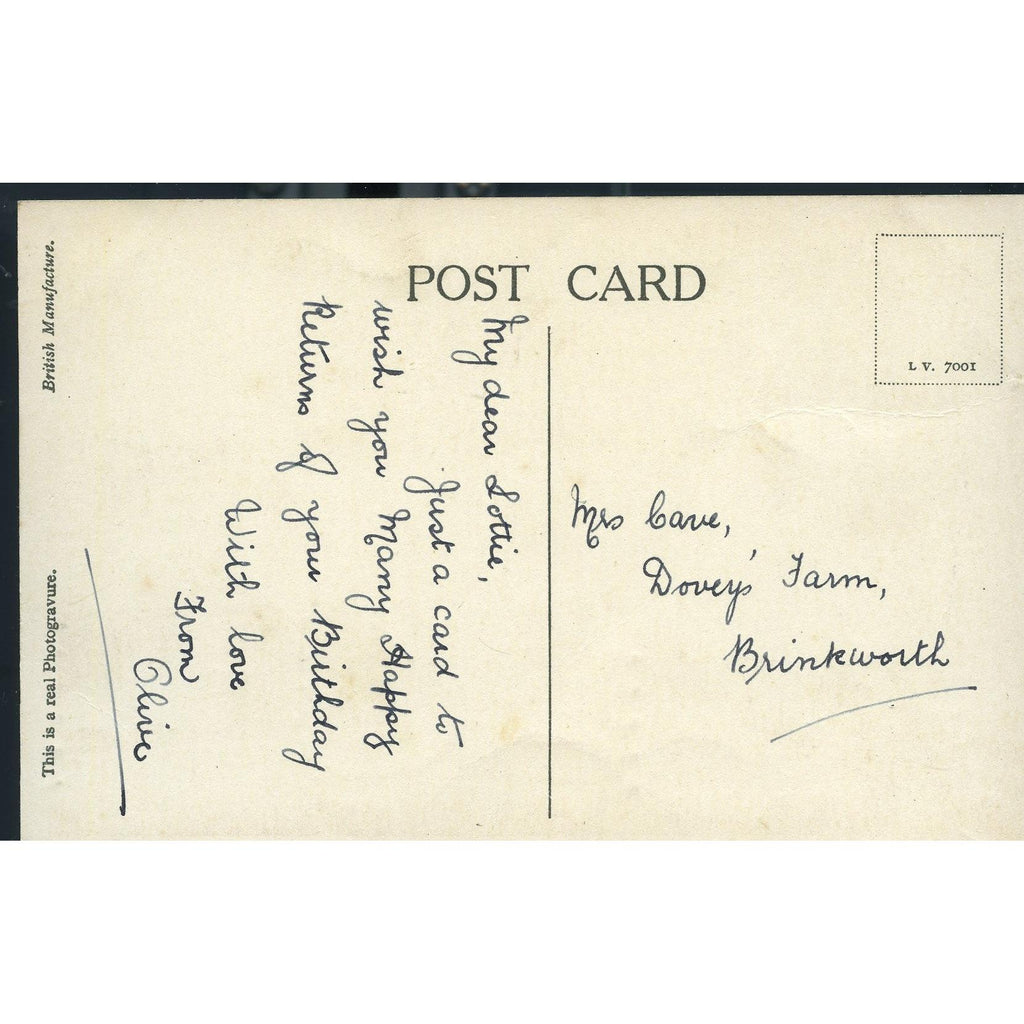 POST CARD
British Manufacture.
This is a real Photogravure.
L V. 7001
My dear Lottie,
Just a card to
wish you Many Happy
Returns of your Birthday
With love
From
Olive
Mrs Cave,
Dovey's Farm,
Brinkworth